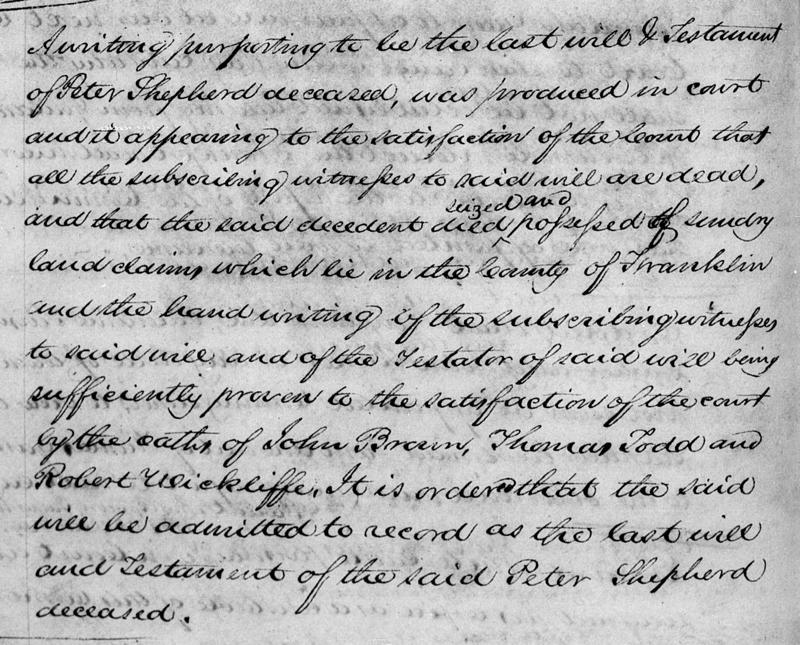 A writing purporting to be the last will & Testament
of Peter Shepherd deceased, was produced in court
and it appearing to the satisfaction of the Court that
all the subscribing witnesses to said will are dead,
seized and
and that the said decedent died possessed of sundry
land claims which lie in the County of Franklin
and the hand writing of the subscribing witnesses
to said will and of the Testator of said will being
sufficiently proven to the satisfaction of the court
by the oaths of John Brown, Thomas Todd and
Robert Wickliffe, It is ordered that the said
will be admitted to record as the last will
and Testament of the said Peter Shepherd
deceased.